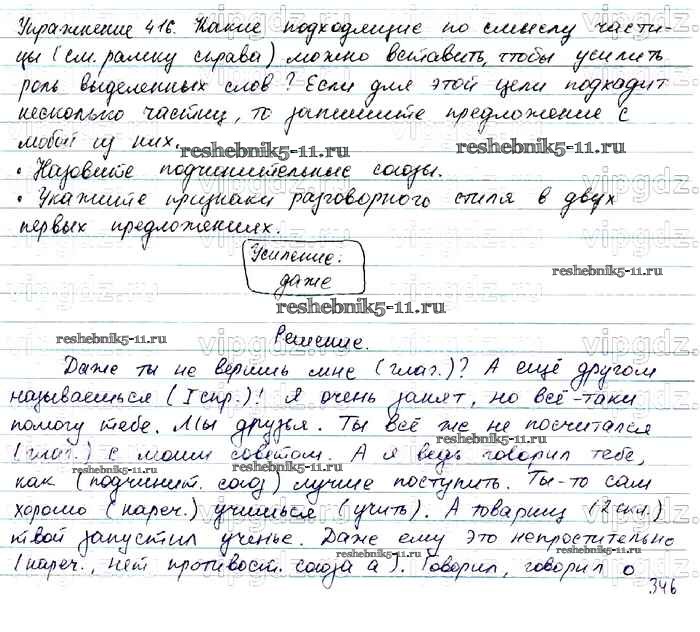 Упражнение 416. Какие подходящие по смыслу части-
цы (см. рамку справа) можно вставить, чтобы усилить
роль выделенных слов? Если для этой цели подходит
несколько частиц, то запишите предложение с
любой из них.
reshebnik5-11.ru
reshebnik5-11.ru
• Назовите подчинительные союзы.
• Укажите признаки разговорного стиля в двух
первых предложениях.
Усиление:
даже
reshebnik5-11.ru
reshebnik5-11.ru
reshebnik5-11.ru
Решение.
reshebnik5-11.ru
Даже ты не веришь мне (глаг.)? А ещё другом
называешься (I спр.)! Я очень занят, но всё-таки
помогу тебе. Мы друзья. Ты всё же не посчитался
reshebnik5-11.ru
(глаг.) с моим советом. А я ведь говорил тебе,
reshebnik5-11.ru
как (подчинит. союз) лучше поступить. Ты-то сам
хорошо (нареч.) учишься (учить). А товарищ (2 скл.)
reshebnik5-11.ru
твой запустил ученье. Даже ему это непростительно
reshebnik5-11.ru
(нареч., нет противост. союза а). Говорил, говорил о
346
vipgdz.ru